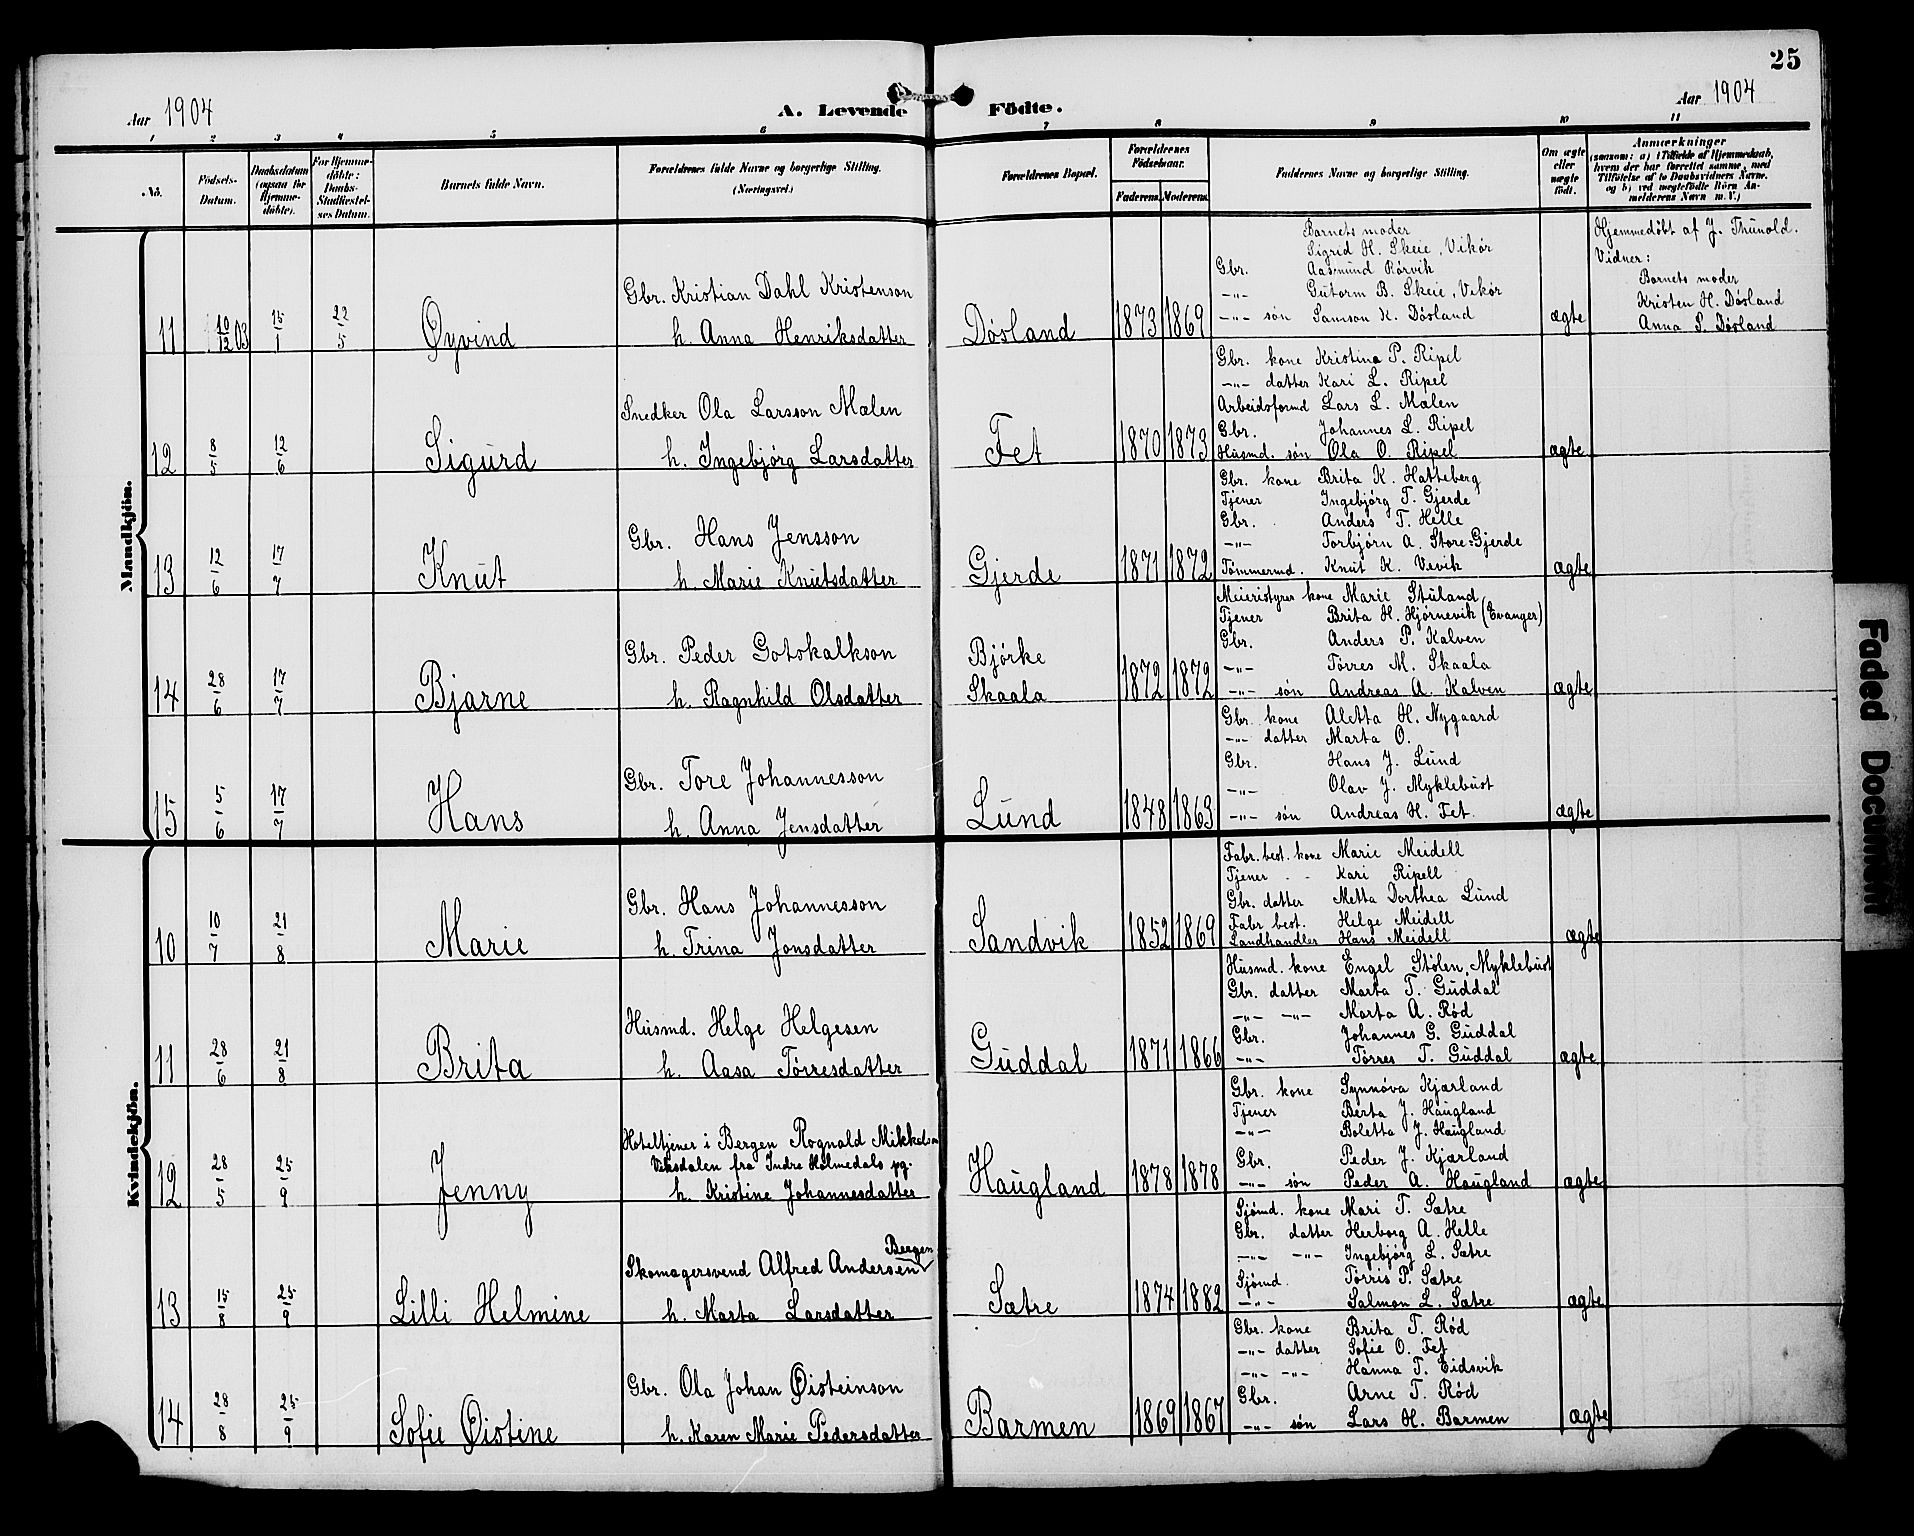 25
Aar 1904
A. Levende Födte.
Aar 1904
1 2 3 4 5 6 7 8 9 10 11
No.
Födsels-Datum.
Daabsdatum (ogsaa for Hjemme-döbte).
For Hjemme-döbte: Daabs-Stadfæstel-ses Datum.
Barnets fulde Navn.
Forældrenes fulde Navne og borgerlige Stilling. (Næringsvei.)
Forældrenes Bopæl.
Forældrenes Födselsaar.
Faderens. Moderens.
Faddernes Navne og borgerlige Stilling.
Om ægte eller uægte födt.
Anmærkninger
(saasom: a) i Tilfælde af Hjemmedaab, hvem der har forrettet samme, med Tilföielse af to Daabsvidners Navne, og b) ved uægtefödte Börn An-melderens Navn m. V.)
Mandkjön.
11 10/12 03 15/1 22/5 Øyvind
Gbr. Kristian Dahl Kristenson
h. Anna Henriksdatter
Døsland 1873 1869
Barnets moder
Sigrid H. Skeie, Vikør
Gbr. Aasmund Rørvik
-"- Gutorm B. Skeie, Vikør
-"- søn Samson K. Døsland
ægte
Hjemmedøbt af J. Thunold.
Vidner:
Barnets moder
Kristen H. Døsland
Anna S. Døsland
12 8/5 12/6 Sigurd
Snedker Ola Larsson Mælen
h. Ingebjørg Larsdatter
Fet 1870 1873
Gbr. kone Kristina P. Ripel
-"- datter Kari L. Ripel
Arbeidsformd Lars L. Mælen
Gbr. Johannes L. Ripel
Husmd. søn Ola O. Ripel
ægte
13 12/6 17/7 Knut
Gbr. Hans Jensson
h. Marie Knutsdatter
Gjerde 1871 1872
Gbr. kone Brita K. Hatteberg
Tjener Ingebjørg T. Gjerde
Gbr. Anders T. Helle
-"- Torbjørn A. Store-Gjerde
Tømmermd. Knut K. Vevik
ægte
14 28/6 17/7 Bjarne
Gbr. Peder Gotskalkson
h. Ragnhild Olsdatter
Bjørke
Skaala
1872 1872
Meieristyrer kone Marie Stuland
Tjener Brita H. Hjørnevik (Evanger)
Gbr. Anders P. Kalven
-"- Tørres M. Skaala
-"- søn Andreas A. Kalven
ægte
15 5/6 17/7 Hans
Gbr. Tore Johannesson
h. Anna Jensdatter
Lund 1848 1863
Gbr. kone Aletta H. Nygaard
-"- datter Marta O.
Gbr. Hans J. Lund
-"- Olav J. Myklebust
-"- søn Andreas H. Fet.
ægte
Kvindekjön.
10 10/7 21/8 Marie
Gbr. Hans Johannesson
h. Trina Jonsdatter
Sandvik 1852 1869
Fabr. best. kone Marie Meidell
Tjener - - Kari Ripell
Gbr. datter Metta Dorthea Lund
Fabr best. Helge Meidell
Landhandler Hans Meidell
ægte
11 28/6 21/8 Brita
Husmd. Helge Helgesen
h. Aasa Tørresdatter
Guddal 1871 1866
Husmd. kone Engel Stølen, Myklebust
Gbr. datter Marta T. Guddal
-"- -"- Marta A. Rød
Gbr. Johannes G. Guddal
-"- Tørres T. Guddal
ægte
12 28/5 25/9 Jenny
Hoteltjener i Bergen Rognald Mikkelson
Viksdalen fra Indre Holmedals pg.
h. Kristine Johannesdatter
Haugland 1878 1878
Gbr. kone Synnøva Kjærland
Tjener Berta J. Haugland
-"- Boletta J. Haugland
Gbr. Peder J. Kjærland
-"- søn Peder A. Haugland
ægte
13 15/8 25/9 Lilli Helmine
Bergen
Skomagersvend Alfred Andersen
h. Marta Larsdatter
Sætre 1874 1882
Sjømd. kone Mari T. Sætre
Gbr. datter Herborg A. Helle
-"- -"- Ingebjørg L. Sætre
Sjømd. Tørris P. Sætre
-"- Salmon L. Sætre
ægte
14 28/8 25/9 Sofie Øistine
Gbr. Ola Johan Øisteinson
h. Karen Marie Pedersdatter
Barmen 1869 1867
Gbr. kone Brita T. Rød
-"- datter Sofie O. Fet
-"- -"- Hanna T. Eidsvik
Gbr. Arne T. Rød
-"- søn Lars H. Barmen
ægte
Faded Document